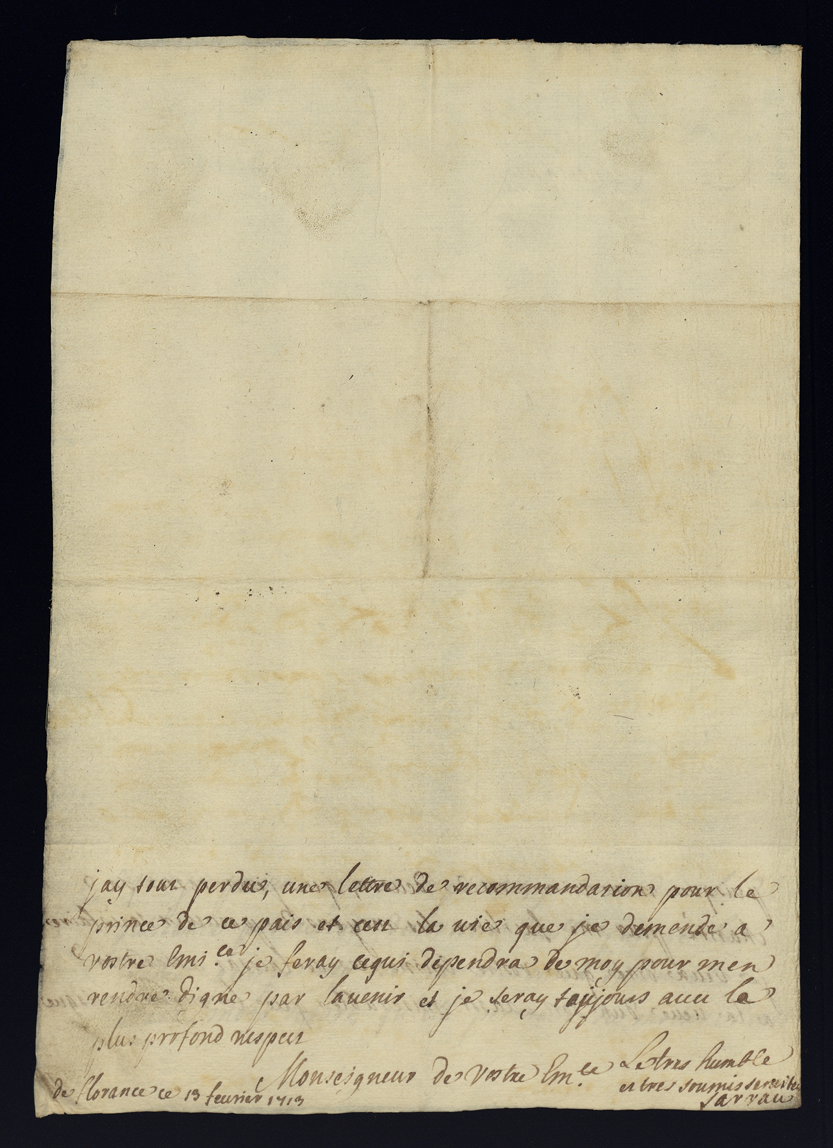 jay tout perdu, une lettre de recommandation pour le
prince de ce pais et cest la vie que je demende a
vostre Emi.ce je feray cequi dependra de moy pour men
rendre digne par lavenir et je seray toujours avec le
plus profond respect
Monseigneur de vostre Em.ce Le tres humble
et tres soumis serviteur
de florance ce 13 fevrier 1713 Sarrau